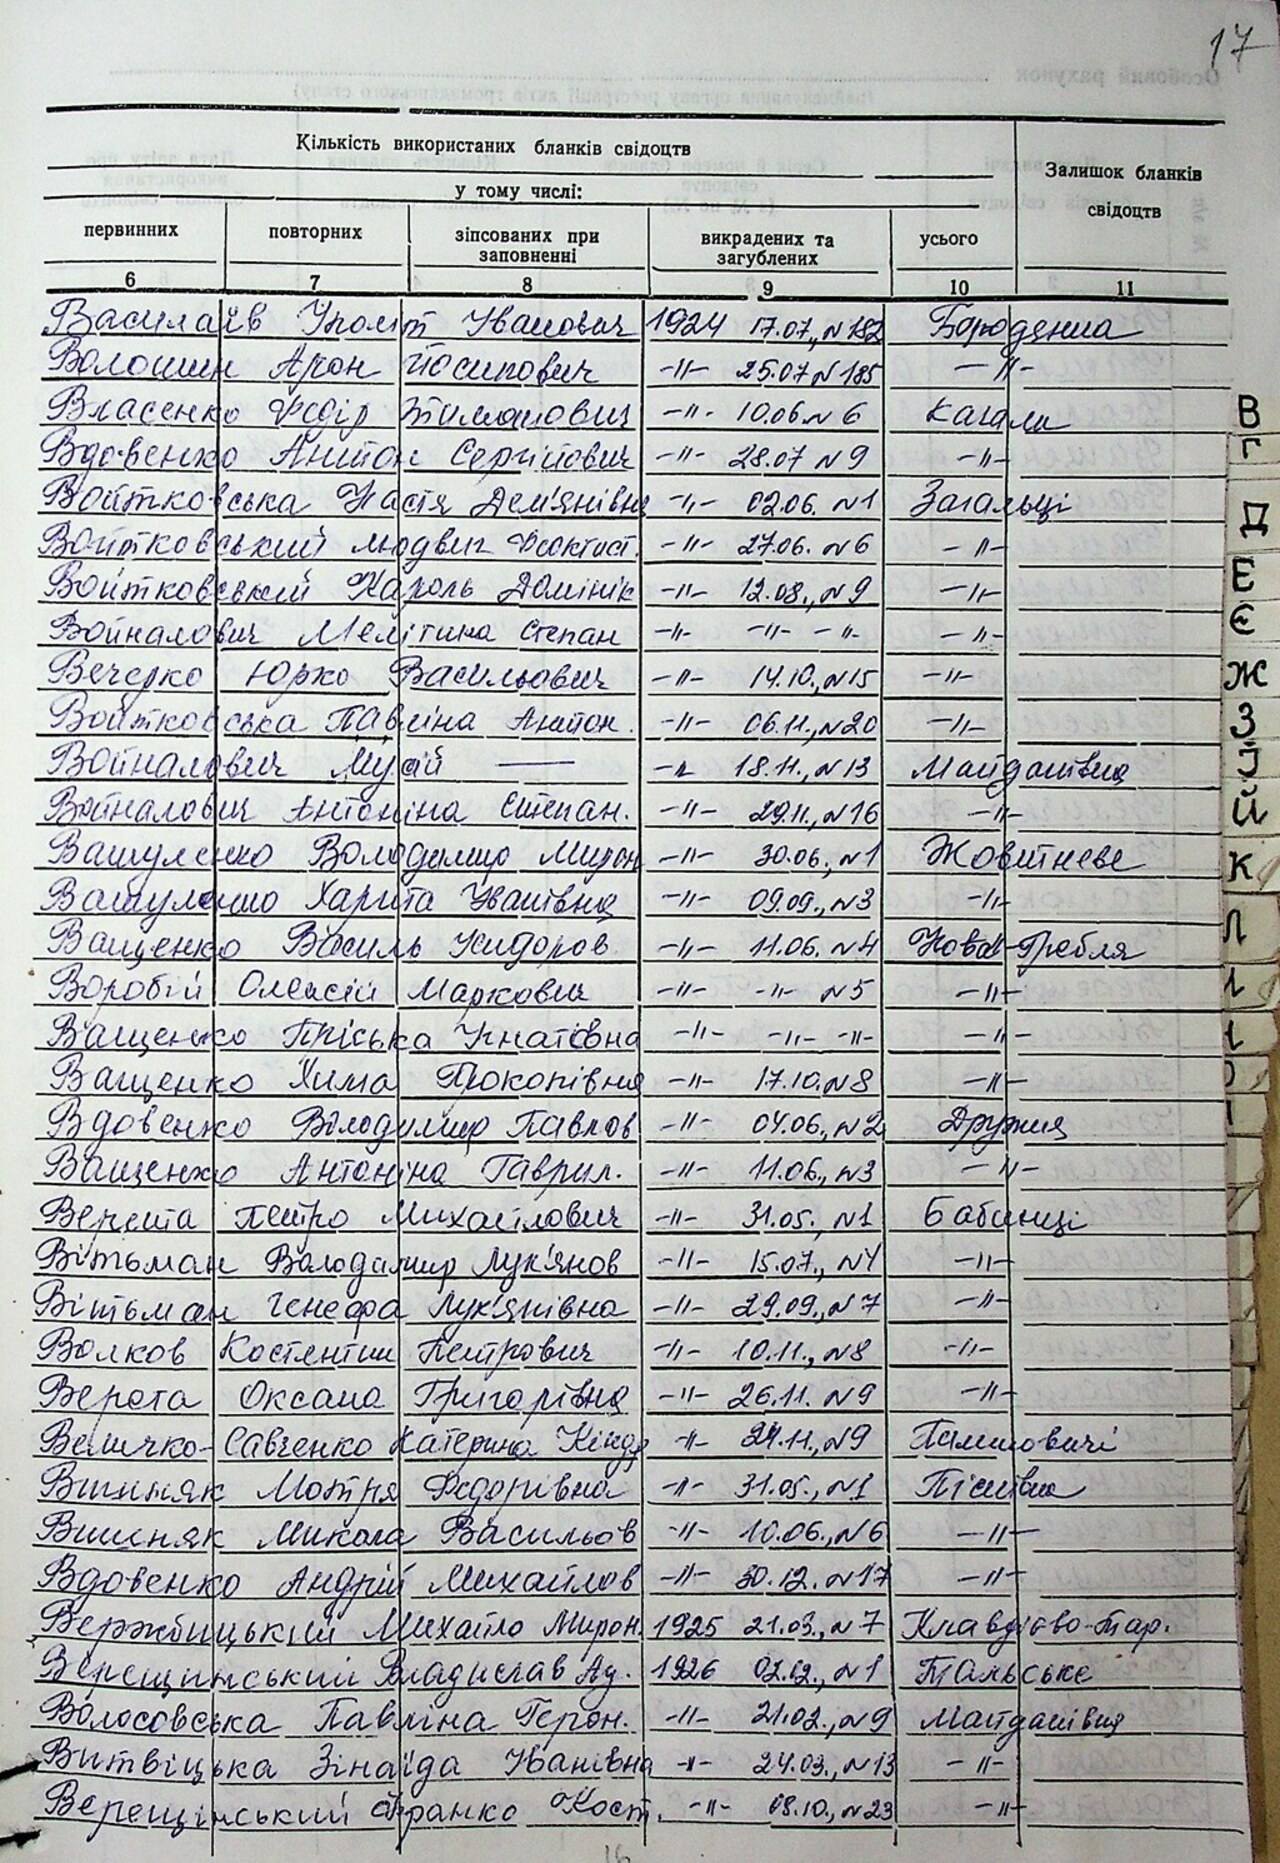 17
Кількість використаних бланків свідоцтв
Залишок бланків свідоцтв
у тому числі:
первинних повторних зіпсованих при заповненні викрадених та загублених усього
6 7 8 9 10 11
Іванович 1924 17.07., №182 Бородянка
Волошин Арон Йосипович -"- 25.07 №185 -"-
Власенко Федір Тимошович -"- 10.06 №6 Качали
Вдовенко Антон Сергійович -"- 28.07 №9 -"-
Войтковська Настя Дем'янівна -"- 02.06. №1 Загальці
Войтковський Людвиг Феоктист. -"- 27.06. №6 -"-
Войтковський Кароль Домінік -"- 12.08., №9 -"-
Войналович Мелітина Степан -"- -"- -"- -"-
Вечерко Юрко Васильович -"- 14.10., №15 -"-
Войтковська Павліна Антон. -"- 06.11., №20 -"-
Войналович Мусій — -"- 18.11., №13 Майданівка
Войналович Антоніна Степан. -"- 29.11., №16 -"-
Вашуленко Володимир Мирон -"- 30.06., №1 Жовтневе
Вашуленко Харита Іванівна -"- 09.09., №3 -"-
Ващенко Василь Сидоров -"- 11.06. №4 Нова Гребля
Воробій Олексій Маркович -"- -"- №5 -"-
Ващенко Пріська Ігнатівна -"- -"- -"- -"-
Ващенко Хима Прокопівна -"- 17.10. №8 -"-
Вдовенко Володимир Павлов -"- 04.06., №2 Дружня
Ващенко Антоніна Гаврил. -"- 11.06., №3 -"-
Петро Михайлович -"- 31.05., №1 Бабинці
Вітьман Володимир Лук'янов -"- 15.07., №4 -"-
Вітьман Генефа Лук'янівна -"- 29.09., №7 -"-
Волков Костянтин Петрович -"- 10.11., №8 -"-
Оксана Григорівна -"- 26.11. №9 -"-
Величко-Савченко Катерина -"- 24.11., №9
Вишняк Мотря Федорівна -"- 31.05., №1 Пісківка
Вишняк Микола Васильов -"- 10.06., №6 -"-
Вдовенко Андрій Михайлов -"- 30.12. №17 -"-
Вержбицький Михайло Мирон. 1925 21.03., №7 Клавдієво-Тар.
Верещинський Владислав Ад. 1926 02.12., №1 Тальське
Волосовська Павліна Герон. -"- 21.02., №9 Майданівка
Витвіцька Зінаїда Іванівна -"- 24.03., №13 -"-
Верещінський Франко Кост. -"- 08.10., №23 -"-
В
Г
Д
Е
Є
Ж
З
Ї
Й
К
Л